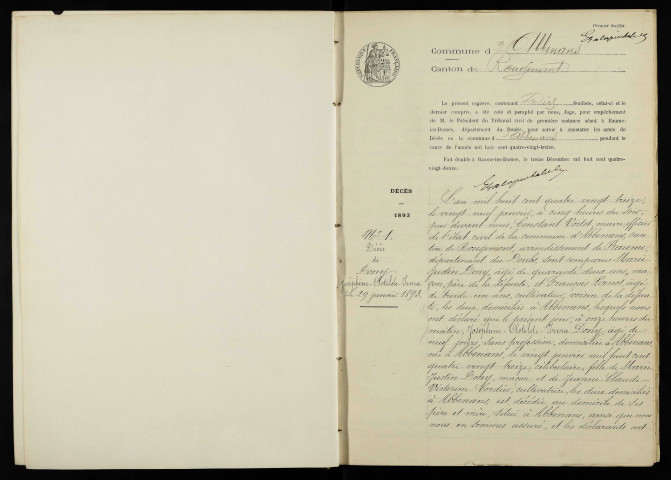 Premier feuillet.
Commune d'Abbenans
Canton de Rougemont
RÉPUBLIQUE FRANÇAISE
Le présent registre, contenant treize feuillets, celui-ci et le
dernier compris, a été coté et paraphé par nous, Juge, pour empêchement
de M. le Président du Tribunal civil de première instance séant à Baume-
les-Dames, département du Doubs, pour servir à constater les actes de
Décès en la commune d'Abbenans pendant le
cours de l'année mil huit cent quatre-vingt-treize.
Fait double à Baume-les-Dames, le treize Décembre mil huit cent quatre-
vingt-douze.
DÉCÈS
1893
No 1.
Décès
de
Dony
Joséphine-Clotilde-Irma
Le 29 janvier 1893.
L'an mil huit cent quatre vingt-treize,
le vingt neuf janvier, à cinq heures du soir,
par devant nous, Constant maire officier
de l'état civil de la commune d'Abbenans, can-
ton de Rougemont, arrondissement de Baume,
département du Doubs, sont comparus Marie
Justin Dony, âgé de quarante deux ans, ma-
çon, père de la défunte, et François Cornot, âgé
de trente un ans, cultivateur, voisin de la défun-
te, les deux domiciliés à Abbenans, lesquels nous
ont déclaré que le présent jour, à onze heures du
matin, Joséphine-Clotilde-Irma Dony, âgée de
neuf jours, sans profession, domiciliée à Abbenans,
née à Abbenans, le vingt janvier mil huit cent
quatre vingt-treize, célibataire, fille de Marie
Justin Dony, maçon, et de Jeanne-Claude-
Victorine Cordier, cultivatrice, les deux domiciliés
à Abbenans, est décédée au domicile de ses
père et mère, situé à Abbenans, ainsi que nous
nous en sommes assuré, et les déclarants ont